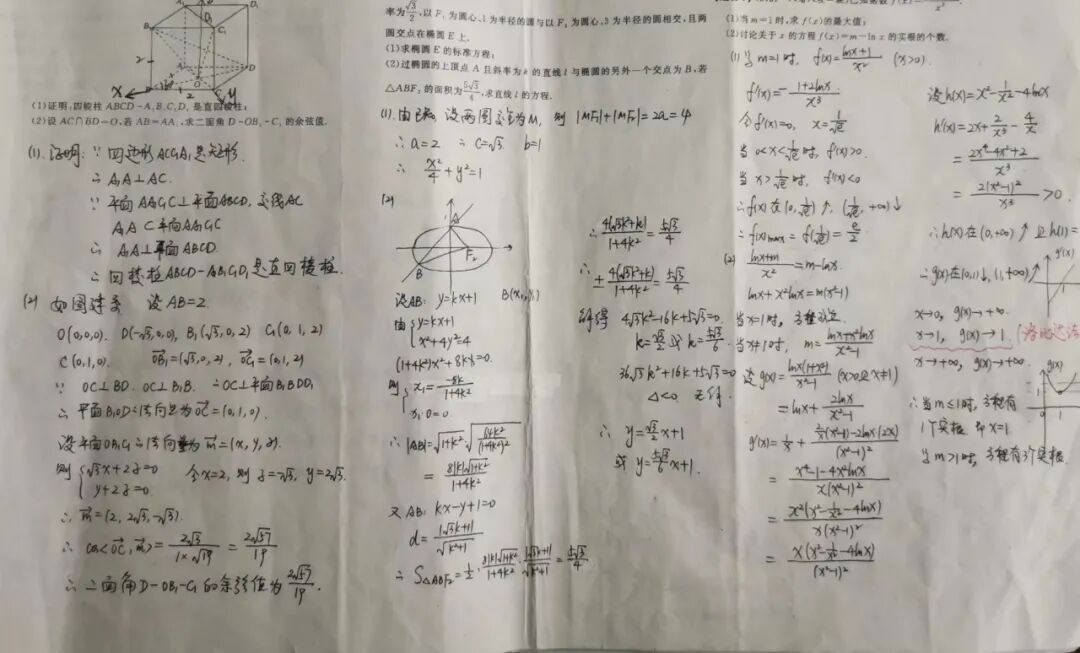 (1)证明:四棱柱 ABCD-A₁B₁C₁D₁ 是直四棱柱;
(2)设 AC∩BD=O,若 AB=AA₁,求二面角 D-OB₁-C₁ 的余弦值.
(1). 证明: ∵ 四边形ACC₁A₁是矩形.
∴ A₁A⊥AC.
∵ 平面AA₁C₁C⊥平面ABCD, 交线AC
A₁A⊂平面AA₁C₁C
∴ A₁A⊥平面ABCD.
∴ 四棱柱ABCD-A₁B₁C₁D₁是直四棱柱.
(2) 如图建系 设AB=2.
O(0,0,0). D(-√3,0,0), B₁(√3,0,2) C₁(0,1,2)
C(0,1,0). OB₁=(√3,0,2), OC₁=(0,1,2)
∵ OC⊥BD. OC⊥B₁B. ∴OC⊥平面B₁BDD₁
∴ 平面B₁OD法向量为OC=(0,1,0).
设平面OB₁C₁法向量为m=(x,y,z).
则 {√3x+2z=0 令x=2, 则z=-√3, y=2√3.
y+2z=0.
∴ m=(2, 2√3,-√3).
∴ cos<OC, m>= 2√3/(1×√19) = 2√57/19
∴ 二面角D-OB₁-C₁的余弦值为 2√57/19.
率为√3/2,以 F₁ 为圆心、1 为半径的圆与以 F₂ 为圆心、3 为半径的圆相交,且两
圆交点在椭圆 E 上.
(1)求椭圆 E 的标准方程;
(2)过椭圆的上顶点 A 且斜率为 k 的直线 l 与椭圆的另外一个交点为 B,若
△ABF₂ 的面积为5√3/4,求直线 l 的方程.
(1). 由已知, 设两圆交点为M, 则 |MF₁|+|MF₂|=2a=4
∴ a=2 ∴ c=√3. b=1
∴ x²/4+y²=1
(2)
A
B
F₂
设AB: y=kx+1 B(x₁,y₁)
由 {y=kx+1
x²+4y²=4
(1+4k²)x²+8kx=0.
则 {x₁=-8k/(1+4k²)
∴ |AB|=√(1+k²)·√(64k²/(1+4k²)²)
= 8|k|√(1+k²)/(1+4k²)
又 AB: kx-y+1=0
d= |√3k+1|/√(k²+1)
∴ S△ABF₂= 1/2· 8|k|√(1+k²)/(1+4k²) · |√3k+1|/√(k²+1) = 5√3/4.
∴ 4|√3k²+k|/(1+4k²) = 5√3/4
∴ ± 4(√3k²+k)/(1+4k²) = 5√3/4
解得 4√3k²-16k+5√3=0.
k=√3/2 或 k=5√3/6.
36√3k²+16k+5√3=0
Δ<0 无解.
∴ y=√3/2x+1
或 y=5√3/6x+1.
(1)当 m=1 时,求 f(x)的最大值;
(2)讨论关于 x 的方程 f(x)=m-ln x 的实根的个数.
(1) 当m=1时, f(x)=(lnx+1)/x² (x>0).
f'(x)=-(1+2lnx)/x³
令f'(x)=0, x=1/√e
当 0<x<1/√e时, f'(x)>0.
当 x>1/√e时, f'(x)<0
∴ f(x)在(0,1/√e)↑, (1/√e,+∞)↓
∴ f(x)max=f(1/√e)=e/2.
(2) (lnx+m)/x²=m-lnx.
lnx+x²lnx=m(x²-1)
当x=1时, 方程成立.
当x≠1时, m=(lnx+x²lnx)/(x²-1)
设g(x)=lnx(1+x²)/(x²-1) (x>0且x≠1)
=lnx+2lnx/(x²-1)
= (x⁴-1-4x²lnx)/(x(x²-1)²)
= x²(x²-1/x²-4lnx)/(x(x²-1)²)
= x(x²-1/x²-4lnx)/(x²-1)²
设h(x)=x²-1/x²-4lnx
h'(x)=2x+2/x³-4/x
= (2x⁴-4x²+2)/x³
= 2(x²-1)²/x³ >0.
∴h(x)在(0,+∞)↑且h(1)=
∴g(x)在(0,1)↓, (1,+∞)↑
x→0, g(x)→+∞.
x→1, g(x)→1. (洛必达法
x→+∞, g(x)→+∞.
∴当m≤1时, 方程有
1个实根 即x=1.
当m>1时, 方程有3个实根.